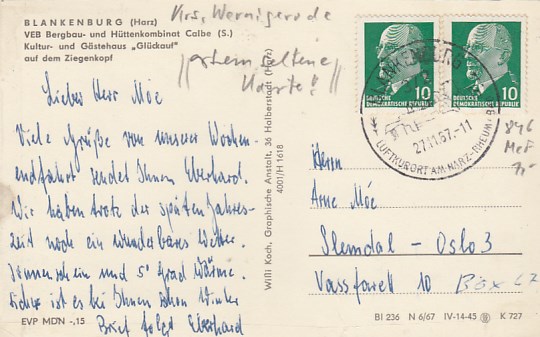 BLANKENBURG (Harz)
VEB Bergbau- und Hüttenkombinat Calbe (S.)
Kultur- und Gästehaus „Glückauf"
auf dem Ziegenkopf
Krs. Wernigerode
seltene
Karte!
Lieber Herr Móe
Viele Grüße von unserer Wochen-
endfahrt sendet Ihnen Eberhard.
Wir haben trotz der späten Jahres-
zeit noch ein wunderbares Wetter.
Sonnenschein und 5° Grad Wärme.
Sicher ist es bei Ihnen schon Winter
Brief folgt Eberhard
EVP MDN -,15
Willi Koch, Graphische Anstalt, 36 Halberstadt (Harz)
4001/H 1618
10
DEUTSCHE
DEMOKRATISCHE REPUBLIK
10
DEUTSCHE
DEMOKRATISCHE REPUBLIK
BLANKENBURG
27.11.67.-11
LUFTKURORT AM HARZ-RHEUMAB
846
Herrn
Arne Móe
Slemdal - Oslo 3
Vassfarett 10 Box
BI 236 N 6/67 IV-14-45 K 727